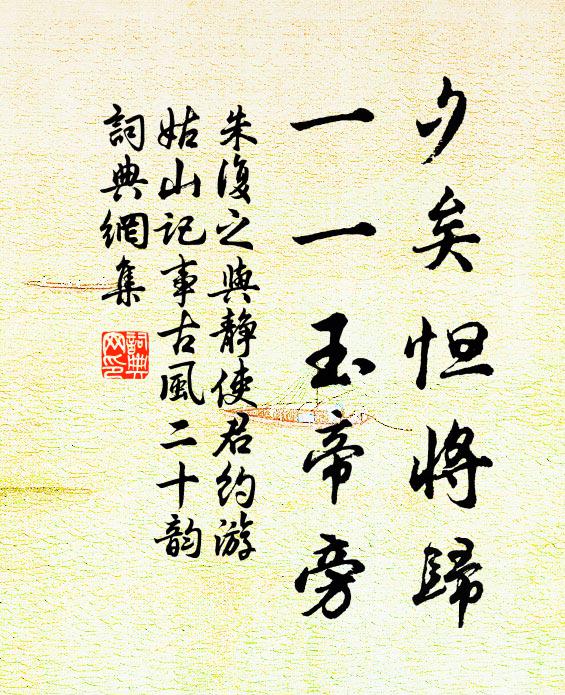 夕矣怛將歸
一一玉帝旁
朱復之與靜使君約游
姑山记事古風二十韵
詞典網集
詞典
网印